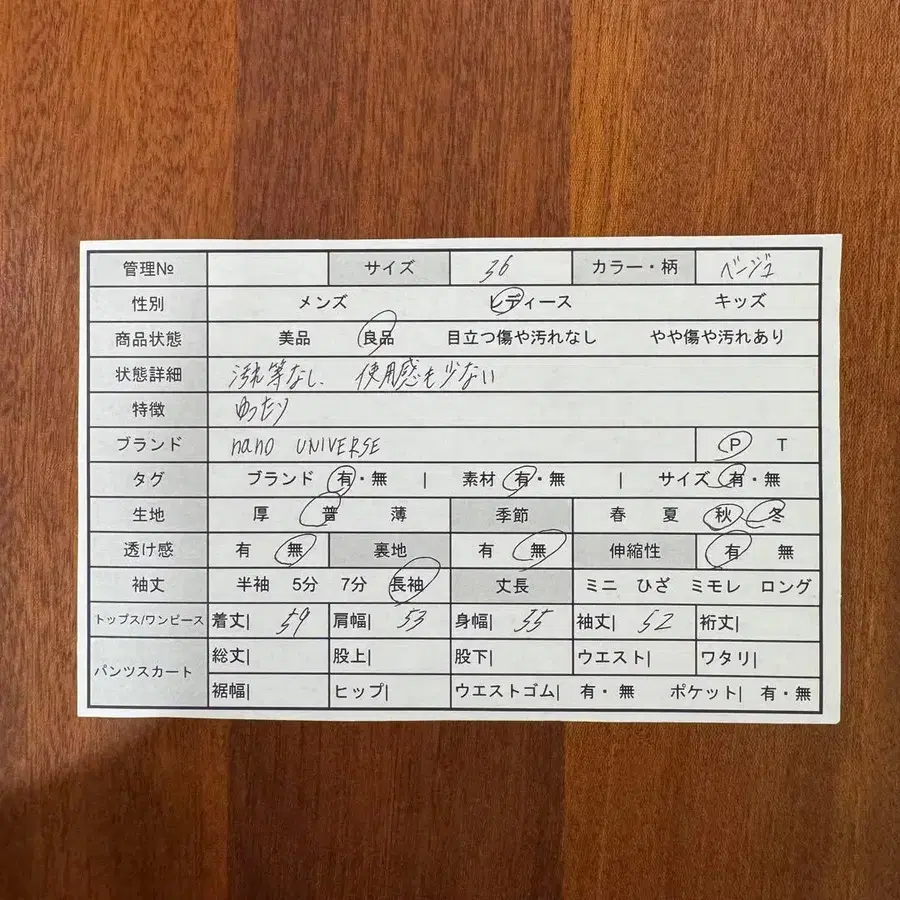 管理№ サイズ 36 カラー・柄 ベージュ
性別 メンズ レディース キッズ
商品状態 美品 良品 目立つ傷や汚れなし やや傷や汚れあり
状態詳細 汚れ等なし、 使用感も少ない
特徴 ゆったり
ブランド nano UNIVERSE P T
タグ ブランド 有・無 | 素材 有・無 | サイズ 有・無
生地 厚 普 薄 季節 春 夏 秋 冬
透け感 有 無 裏地 有 無 伸縮性 有 無
袖丈 半袖 5分 7分 長袖 丈長 ミニ ひざ ミモレ ロング
トップス/ワンピース 着丈| 59 肩幅| 53 身幅| 55 袖丈| 52 裄丈|
パンツスカート 総丈| 股上| 股下| ウエスト| ワタリ|
裾幅| ヒップ| ウエストゴム| 有・無 ポケット| 有・無